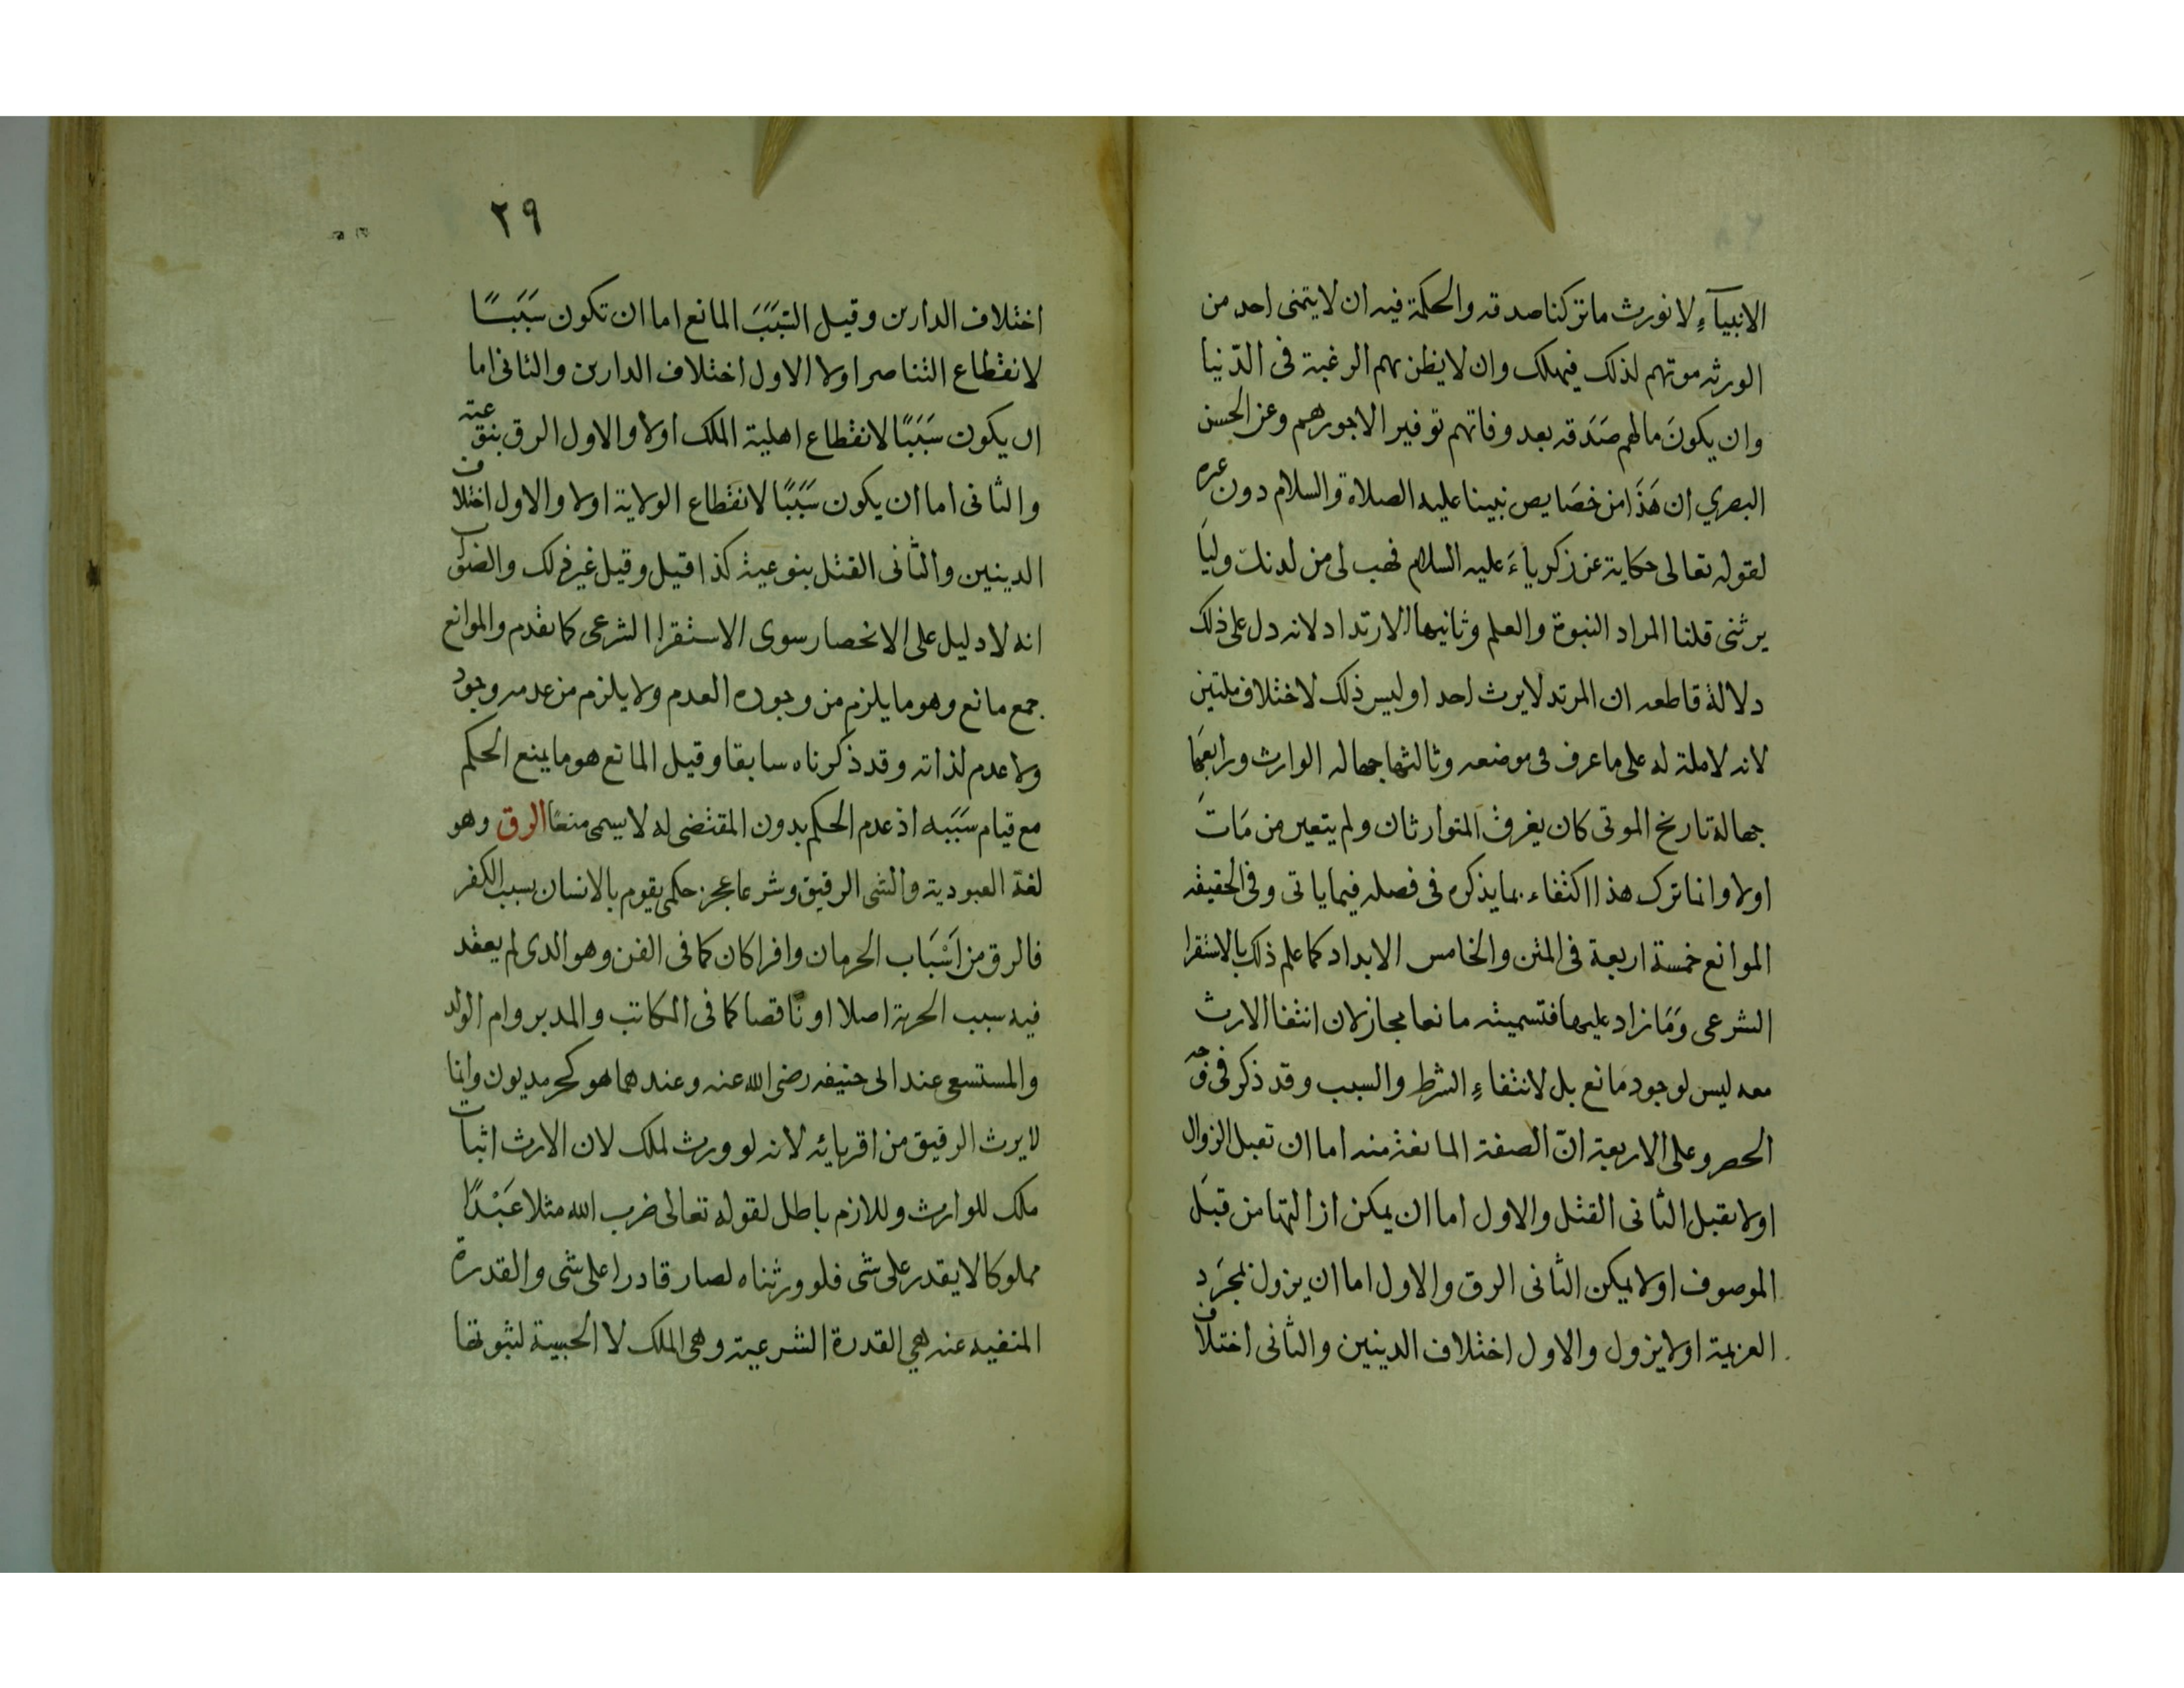 الانبيآءِ لا نورث ما تركنا صدقه والحكمة فيه ان لا يتمنى احد من
الورثه موتهم لذلك فيهلك وان لا يظن بهم الرغبة فى الدّنيا
وان يكونَ مالهم صَدَقه بعد وفاتهم توفيرا لاجورهم وعن الحسن
البصري ان هَذَا من خصَايص نبينا عليه الصلاة والسلام دون غيره
لقوله تعالى حكاية عن زكرياءَ عليه السلام فهب لى من لدنك وليَا
يرثنى قلنا المراد النبوة والعلم وثانيها الارتداد لانه دل على ذلك
دلالة قاطعه ان المرتد لا يرث احدا وليس ذلك لاختلاف ملتين
لانه لا ملة له على ما عرف فى موضعه وثالثها جهاله الوارث ورابعَها
جهالة تاريخ الموتى كان يغرق المتوارثان ولم يتعين من مَاتَ
اولا وانما ترك هذا اكتفاء بما يذكره فى فصله فيما ياتى وفى الحقيقه
الموانع خمسة اربعة فى المتن والخامس الابداد كما علم ذلك بالاستقرا
الشرعى وَمَا زاد عليها فتسميته مانعا مجاز لان انتفا الارث
معه ليس لوجود مَانع بل لانتفاءِ الشرط والسبب وقد ذكر فى وجه
الحصر وعلى الاربعة انّ الصفة المانعة منه اما ان تقبل الزوال
اولا يقبل الثانى القتل والاول اما ان يمكن ازالتها من قبَل
الموصوف اولا يمكن الثانى الرق والاول اما ان يزول بمجرَد
العزيمة اولا يزول والاول اختلاف الدينين والثانى اختلاف
٢٩
اختلاف الدارين وقيل السّبَبَ المانع اما ان تكون سَبَبًا
لانقطاع التناصر اولا الاول اختلاف الدارين والثانى اما
ان يكون سَبَبًا لانقطاع اهلية الملك اولا والاول الرق بنوعيه
والثانى اما ان يكون سَبَبًا لانقطاع الولاية اولا والاول اختلاف
الدينين والثانى القتل بنوعيه كذا قيل وقيل غير ذلك والصواب
انه لا دليل على الانحصار سوى الاستقرا الشرعى كما تقدم والموانع
جمع مانع وهو ما يلزم من وجوده العدم ولا يلزم من عدمه وجود
ولا عدم لذاته وقد ذكرناه سابقا وقيل المانع هو ما يمنع الحكم
مع قيام سَبَبه اذ عدم الحكم بدون المقتضى له لا يسمى منعًا الرق وهو
لغة العبودية والشى الرقيق وشرعا عجز حكمى يقوم بالانسان بسبب الكفر
فالرق من اَسْبَاب الحرمان وافرا كان كما فى القن وهو الدى لم يعقد
فيه سبب الحرية اصلا او ناقصا كما فى المكاتب والمدبر وام الولد
والمستسعى عند ابى حنيفه رضى الله عنه وعندهما هو كحر مديون وانما
لا يرث الرقيق من اقربائه لانه لو ورث لملك لان الارث اثبات
ملك للوارث وللازم باطل لقوله تعالى ضرب الله مثلا عَبْدًا
مملوكا لا يقدر على شى فلو ورثناه لصار قادرا على شى والقدرة
المنفيه عنه هي القدرة الشرعية وهى الملك لا الحسية لثبوتها